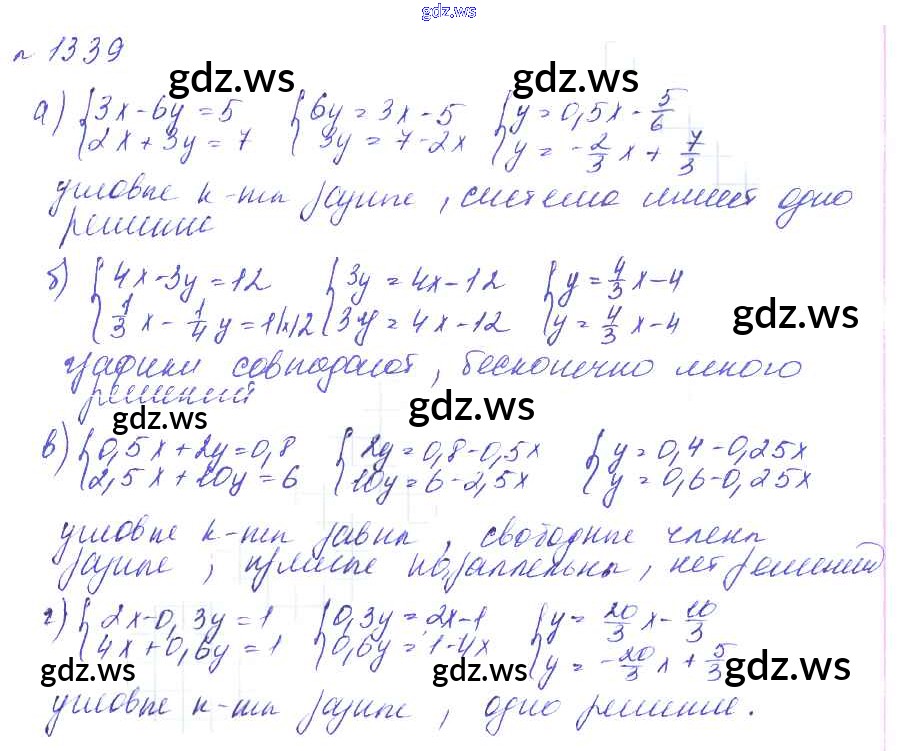 gdz.ws
№ 1339
gdz.ws gdz.ws
а) {3x-6y=5 {6y=3x-5 {y=0,5x-5/6
{2x+3y=7 {3y=7-2x {y=-2/3x+7/3
угловые к-ты разные, система имеет одно
решение
б) {4x-3y=12 {3y=4x-12 {y=4/3x-4
{1/3x-1/4y=1|x12 {3y=4x-12 {y=4/3x-4
gdz.ws
графики совпадают, бесконечно много
решений
gdz.ws gdz.ws
в) {0,5x+2y=0,8 {2y=0,8-0,5x {y=0,4-0,25x
{2,5x+10y=6 {10y=6-2,5x {y=0,6-0,25x
угловые к-ты равны, свободные члены
разные, прямые параллельны, нет решений
г) {2x-0,3y=1 {0,3y=2x-1 {y=20/3x-10/3
{4x+0,6y=1 {0,6y=1-4x {y=-20/3x+5/3
gdz.ws gdz.ws gdz.ws
угловые к-ты разные, одно решение.